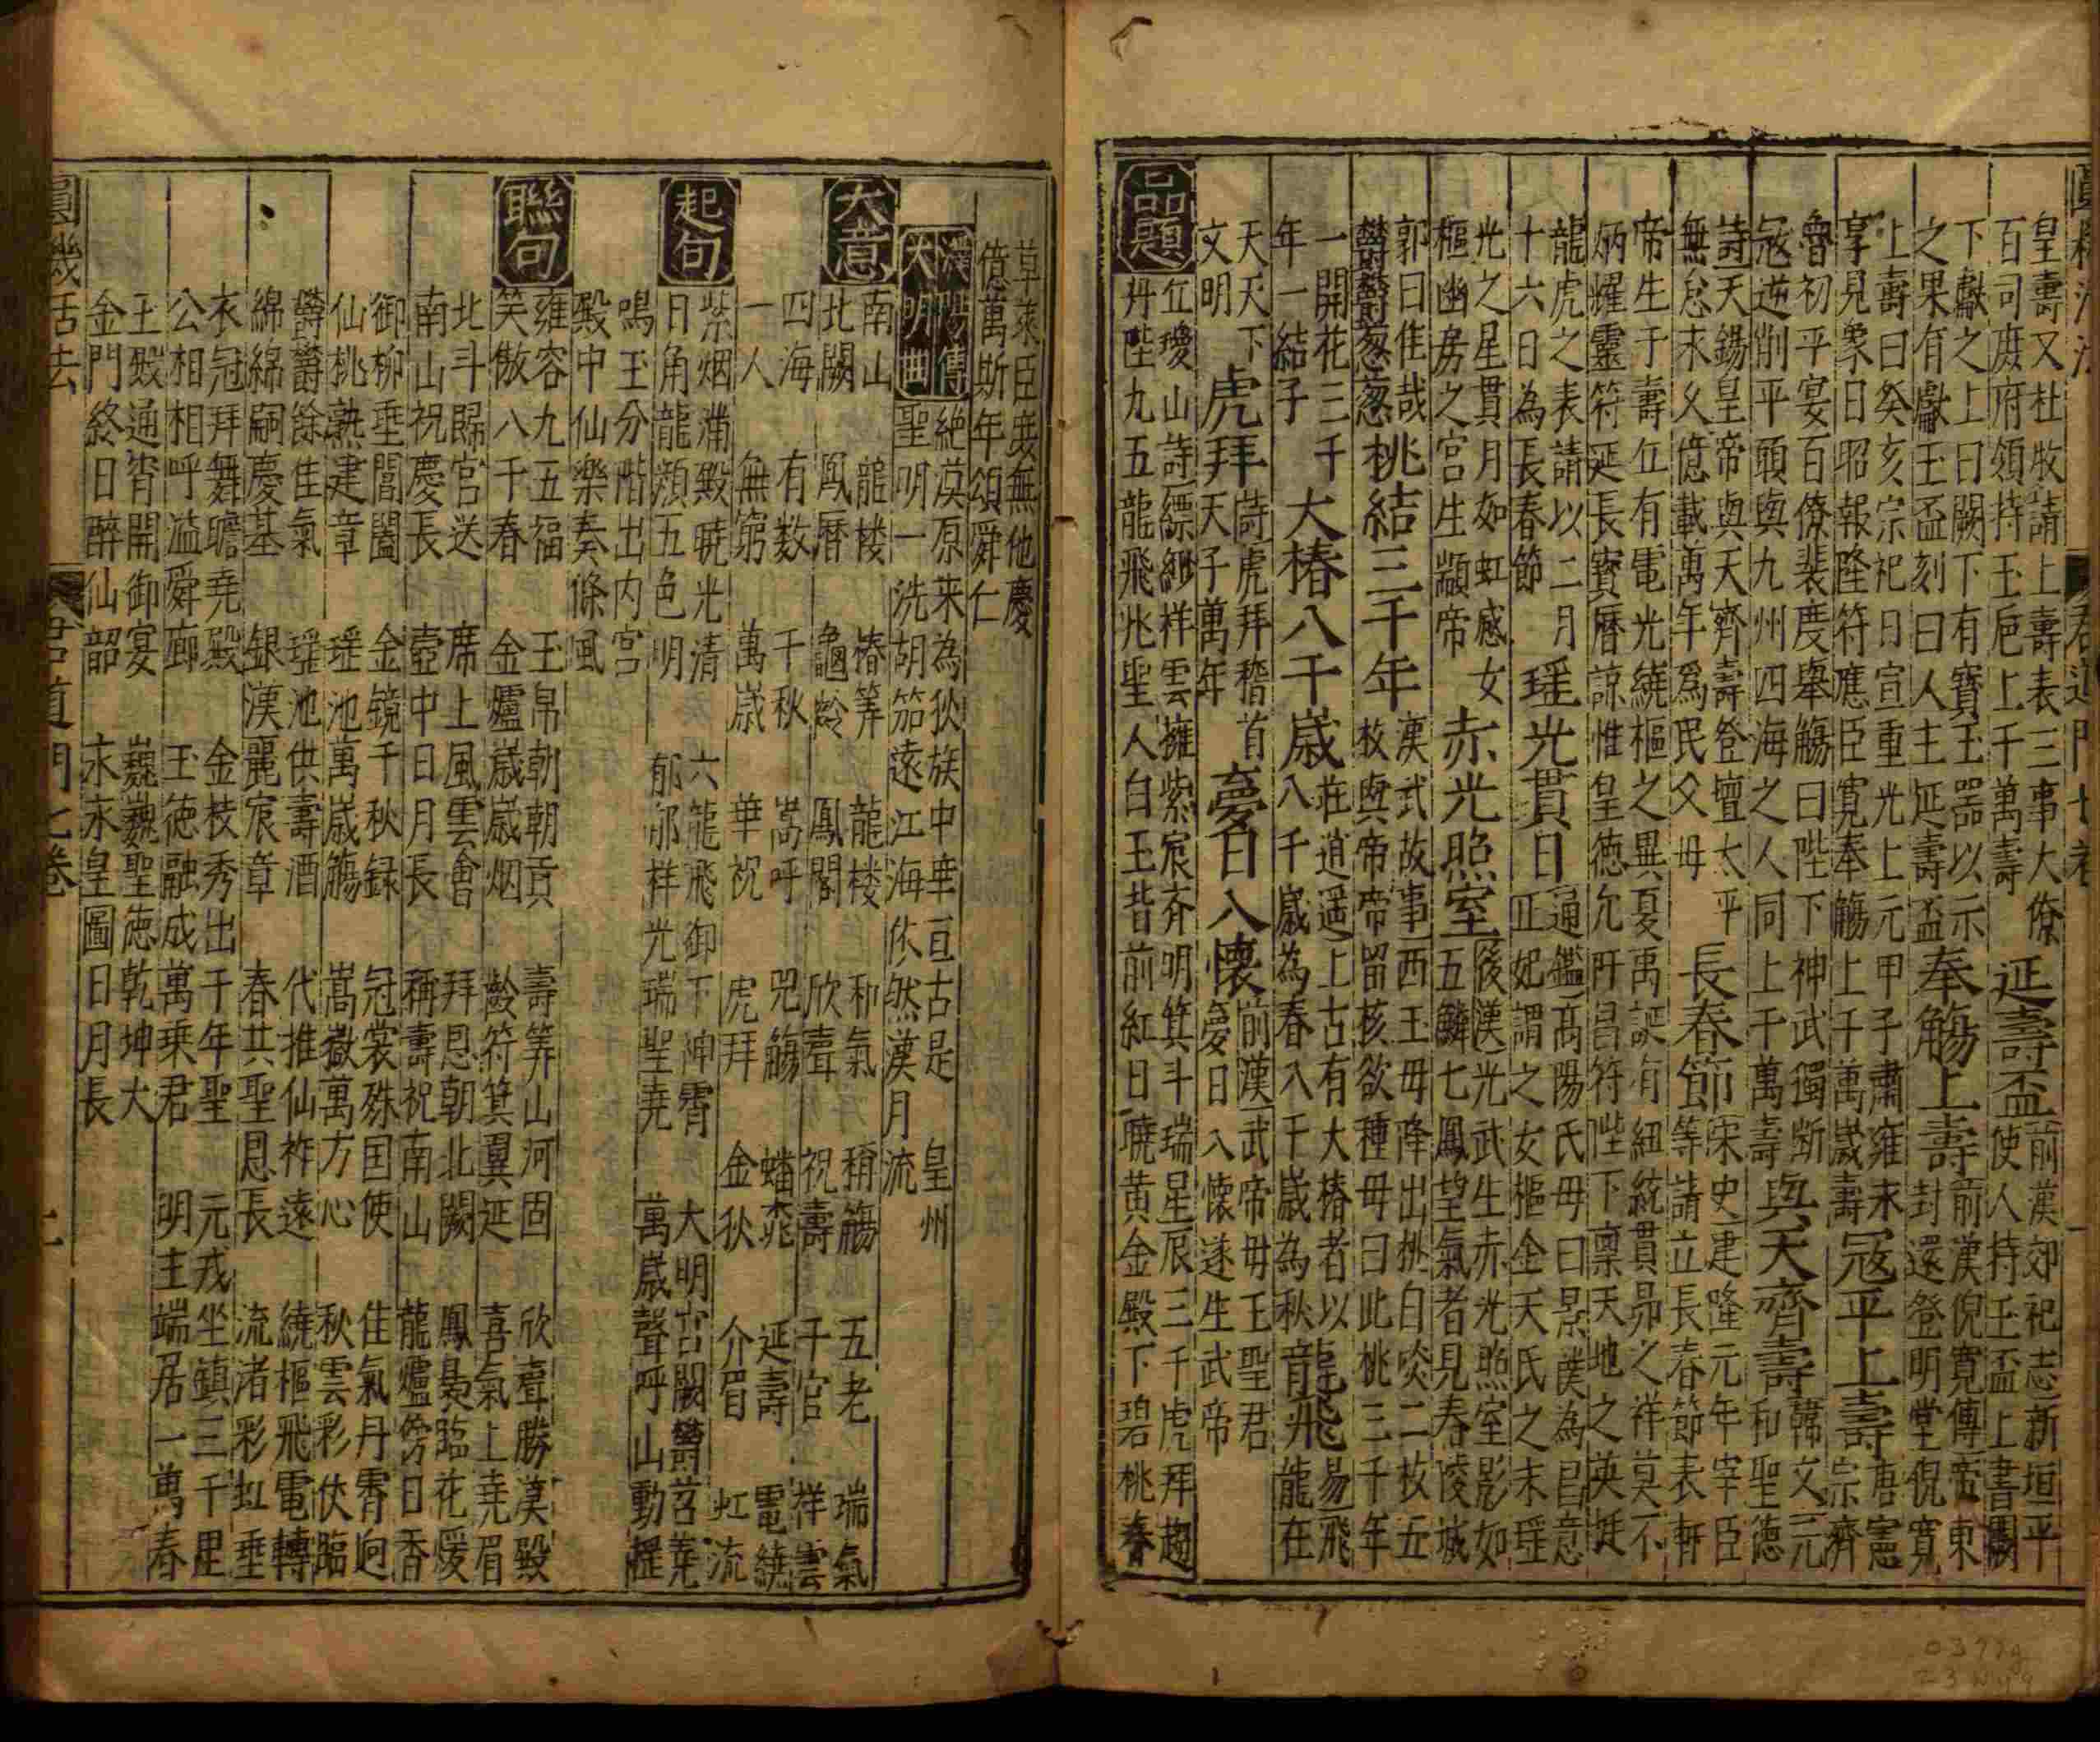 皇壽又杜牧請上壽表三事大僚
百司庶府領持玉巵上千萬壽
延壽盃
前漢郊祀志新垣平
使人持玉盃上書闕
下獻之上曰闕下有寶玉器以示
之果有獻玉盃刻曰人主延壽盃
奉觴上壽
前漢倪寬傳帝東
封還登明堂倪寬
上壽曰癸亥宗祀日宣重光上元甲子肅雍永
享見象日昭報隆符應臣寬奉觴上千萬歲壽
冦平上壽
唐憲
宗濟
魯初平宴百僚裴度舉觴曰陛下神武獨斷
冦逆削平頭與九州四海之人同上千萬壽
與天齊壽
韓文元
和聖德
詩天錫皇帝與天齊壽登壇太平
無怠末乂億載萬年爲民父母
長春節
宋史建隆元年宰臣
等請立長春節表軒
帝生于壽丘有電光繞樞之異夏禹誕有紐統貫昴之祥莫不
炳耀靈符延長寳曆諒惟皇德允叶昌符陛下禀天地之英挺
龍虎之表請以二月
十六日為長春節
瑶光貫日
通鑑高陽氏母曰景僕為昌意
正妃謂之女樞金天氏之末瑶
光之星貫月如虹感女
樞幽房之宮生顓帝
赤光照室
後漢光武生赤光照室影如
五鱗七鳳望氣者見春陵城
郭曰佳哉
鬱鬱葱葱
桃結三千年
漢武故事西王母降出桃自啖二枚五
枚與帝帝留核欲種母曰此桃三千年
一開花三千
年一結子
大椿八千歲
莊逍遥上古有大椿者以
八千歲為春八千歲為秋
龍飛
易飛
龍在
天天下
文明
虎拜
詩虎拜稽首
天子萬年
夢日入懷
前漢武帝母王聖君
夢日入懷遂生武帝
品題
丘瓊山詩縹緲祥雲擁紫宸齊明箕斗瑞星辰三千虎拜趨
丹陛九五龍飛兆聖人白玉堦前紅日曉黄金殿下碧桃春
草萊臣庶無他慶
億萬斯年頌舜仁
漢陽傳
大明曲
絶漠原来為狄族中華亘古是皇州
聖明一洗胡笳遠江海依然漢月流
大意
南山 龍楼 椿筭 龍楼 和氣 稱觴 五老 瑞氣
北闕 鳳曆 龜齡 鳳閣 欣聲 祝壽 千官 祥雲
四海 有数 千秋 嵩呼 兕觴 蟠桃 延壽 電繞
一人 無窮 萬歳 華祝 虎拜 金秋 介眉 虹流
起句
紫烟滿殿曉光清 六龍飛御下神霄 大明宫闕鬱岧嶤
日角龍顔五色明 郁郁祥光瑞聖堯 萬歳聲呼山動揺
鳴玉分階出内宫
殿中仙樂奏條風
聯句
雍容九五福 玉帛朝朝貢 壽筭山河固 欣聲勝漢殿
笑傲八千春 金爐歳歳烟 齡符箕翼延 喜氣上堯眉
北斗歸官送 席上風雲會 拜恩朝北闕 鳳梟臨花煖
南山祝慶長 壺中日月長 稱壽祝南山 龍爐傍日香
御柳垂閶闔 金鏡千秋録 冠裳殊国使 佳氣丹霄逈
仙桃熟建章 瑶池萬歳觴 嵩嶽萬方心 秋雲彩伏臨
鬱鬱餘佳氣 瑶池供壽酒 代推仙祚遠 繞樞飛電轉
綿綿嗣慶基 銀漢麗宸章 春共聖恩長 流渚彩虹垂
衣冠拜舞瞻堯殿 金枝秀出千年聖 元戎坐鎮三千里
公相相呼溢舜廊 玉徳融成萬乗君 明主端居一萬春
玉殿通宵開御宴 巍巍聖徳乾坤大
金門終日醉仙韶 永永皇圖日月長
圓機活法 君道門七卷